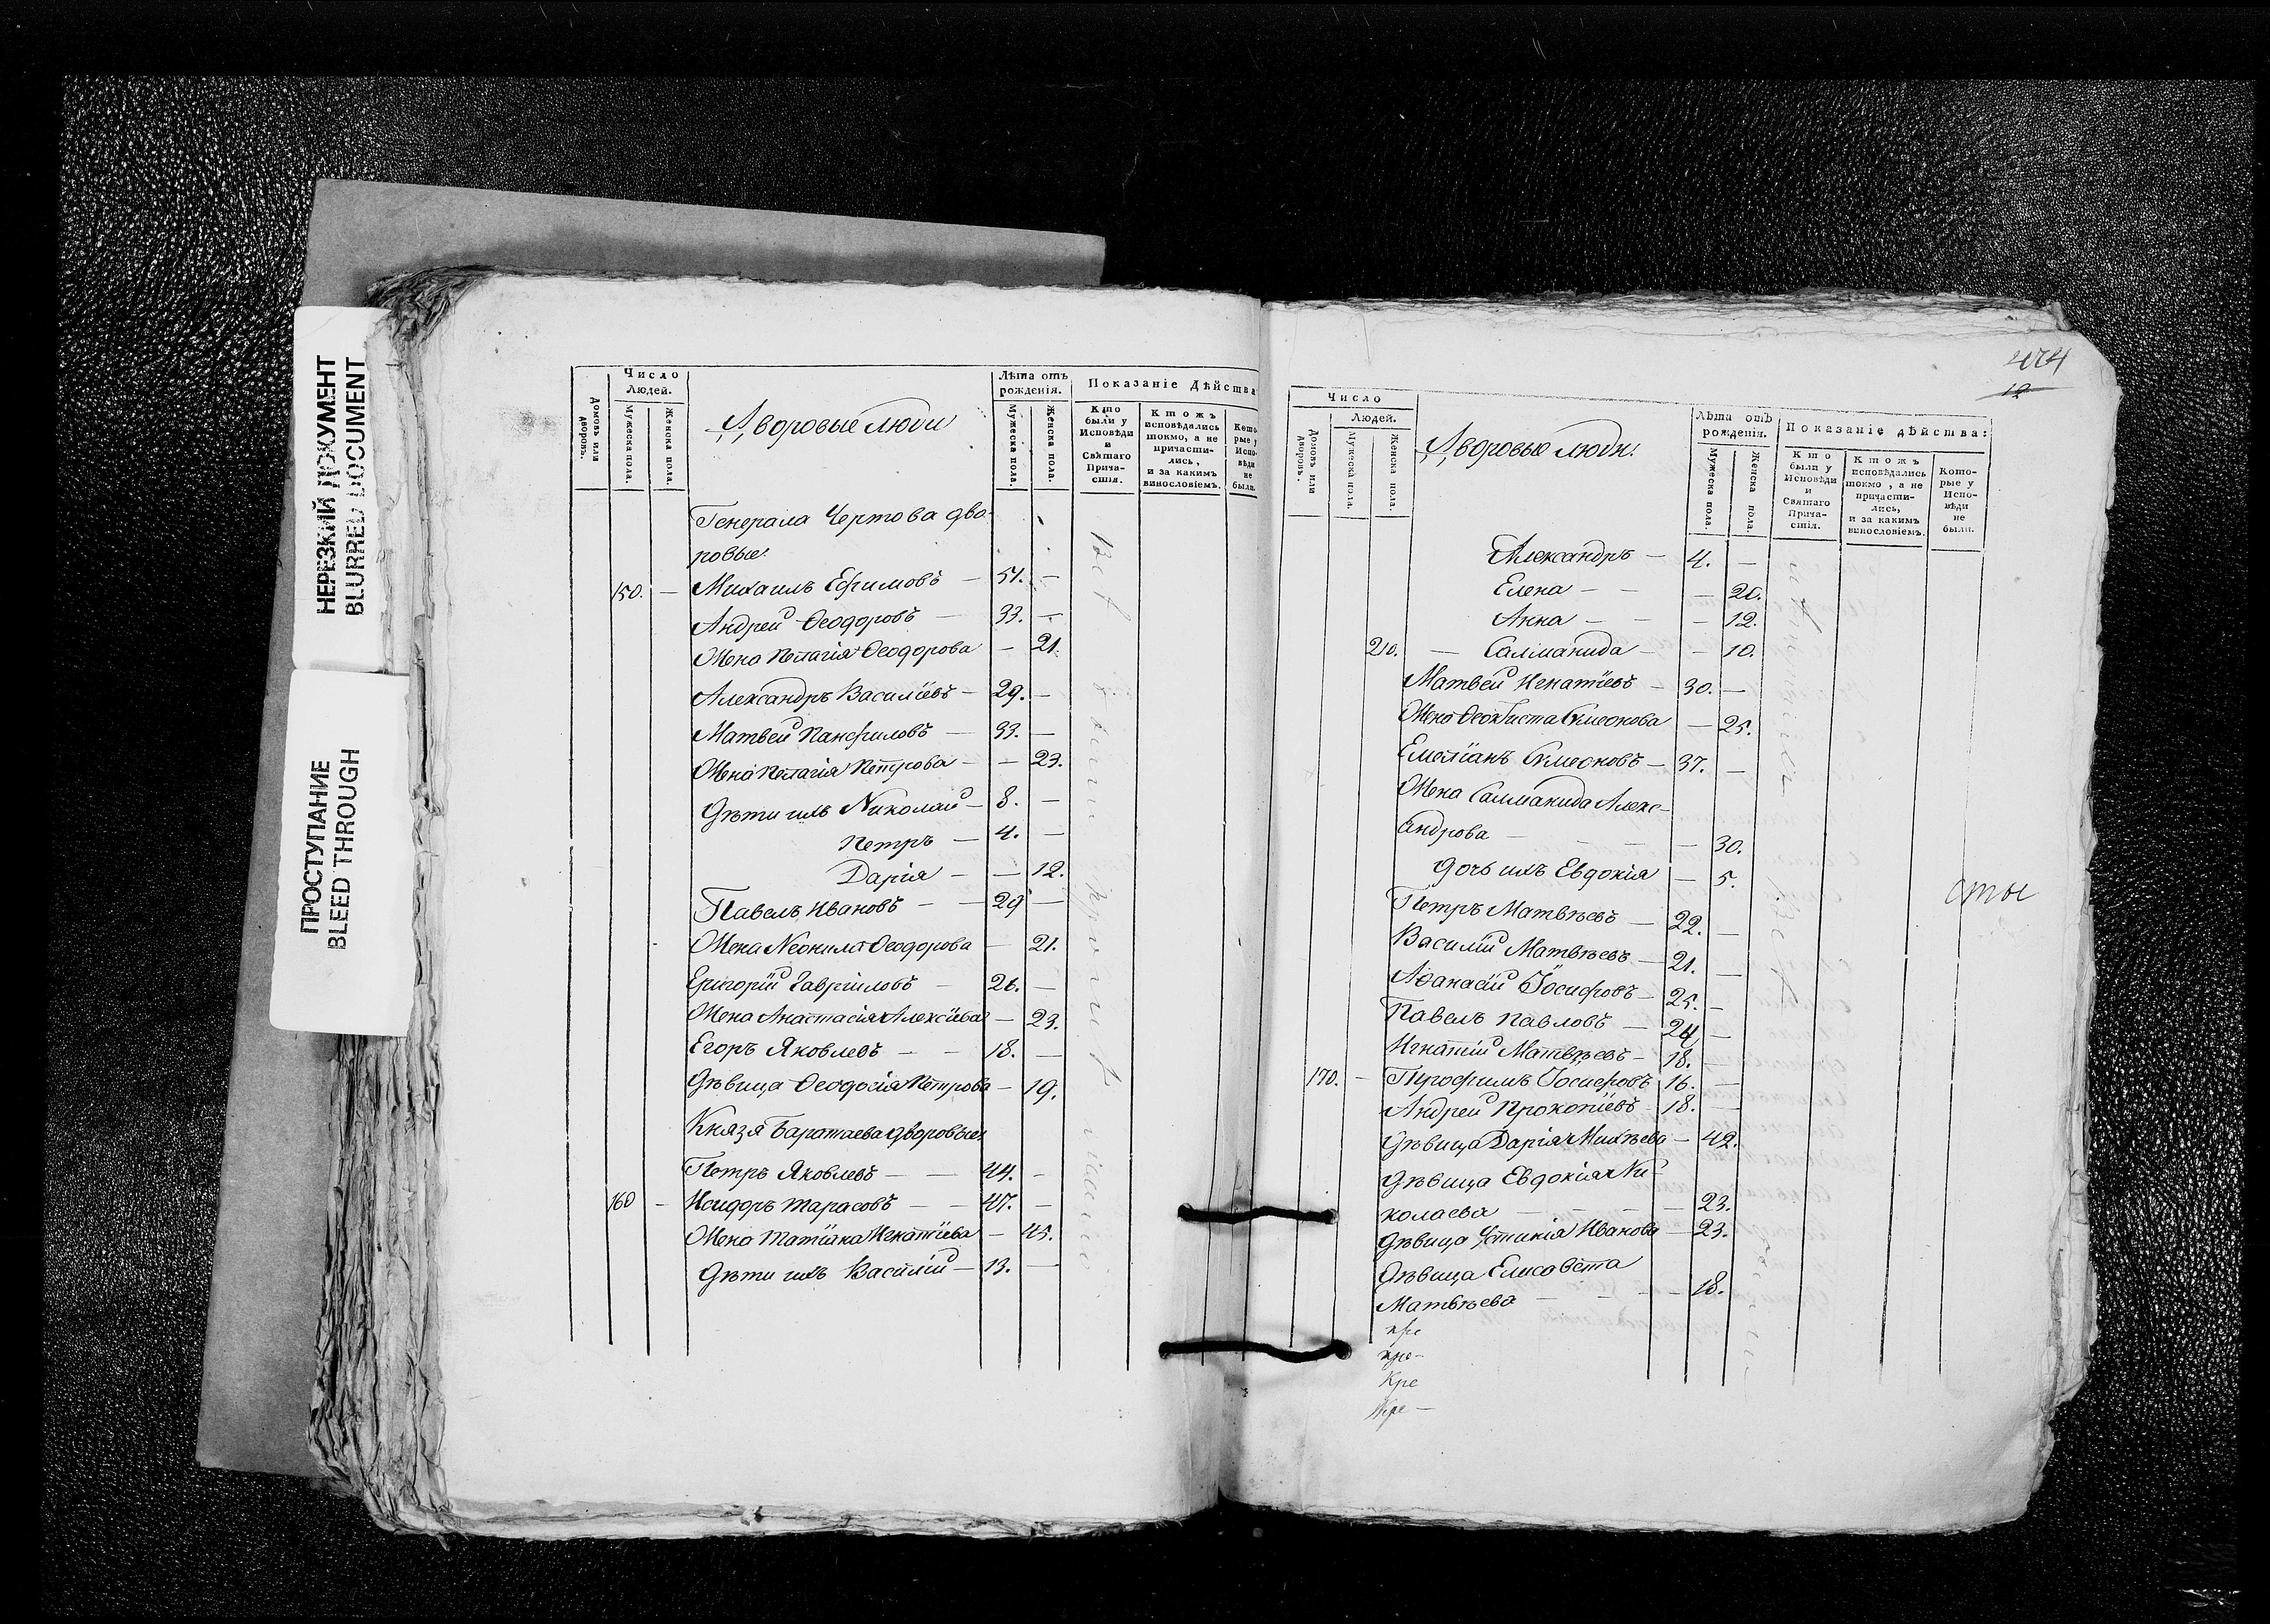 НЕРЕЗКИЙ ДОКУМЕНТ
BLURRED DOCUMENT
ПРОСТУПАНИЕ
BLEED THROUGH
Домовъ или дворовъ.
Число
Людей.
Мужеска пола.
Женска пола.
Дворовые люди
Лѣта отъ
рожденія.
Мужеска пола.
Женска пола.
Показаніе Дѣйства
Кто
были у
Исповѣди
и
Святаго
Прича-
стія.
Ктожъ
исповѣдались
токмо, а не
причасти-
лись,
и за какимъ
винословіемъ.
Кото
рые у
Испо-
вѣди
не
были.
Генерала Чертова дво-
ровые:
150. — Михаилъ Ефимовъ — 51. —
Андрей Ѳеодоровъ — 33. —
Жена Пелагія Ѳеодорова — 21.
Александръ Василіевъ — 29. —
Матвей Панфиловъ — 33. —
Жена Пелагія Петрова — — 23.
Дѣти ихъ Николай — 8. —
Петръ — 4. —
Дарія — — 12.
Павелъ Ивановъ — — 29 —
Жена Неонила Ѳеодорова — 21.
Григорій Гавріиловъ — 26. —
Жена Анастасія Алексіева — 23.
Егоръ Яковлевъ — — 18. —
Дѣвица Ѳеодосія Петрова — 19.
Князя Баратаева дворовые:
Петръ Яковлевъ — — 44. —
160 — Исидоръ Тарасовъ — — 47. —
Жена Татіана Игнатіева — 45.
Дѣти ихъ Василій — 13. —
474
12
Домовъ или дворовъ.
Число
Людей.
Мужеска пола.
Женска пола.
Дворовые люди.
Лѣта отъ
рожденія.
Мужеска пола.
Женска пола.
Показаніе дѣйства:
Кто
были у
Исповѣди
и
Святаго
Прича-
стія.
Ктожъ
исповѣдались
токмо, а не
причасти-
лись,
и за какимъ
винословіемъ.
Кото-
рые у
Испо-
вѣди
не
были.
Александръ — 4. —
Елена — — — 20.
Анна — — — 12.
210. — Саломанида — — 10.
Матвей Игнатіевъ — 30. —
Жена Ѳеоктиста Симеонова — 25.
Емеліанъ Симеоновъ — 37. —
Жена Саломанида Алекс-
андрова — — — — 30.
Дочь ихъ Евдокія — 5.
Петръ Матвѣевъ — 22. —
Василій Матвѣевъ — 21. —
Аѳанасій Іосифовъ — 25. —
Павелъ Павловъ — 24 —
Игнатій Матвѣевъ — 18. —
170. — Трофимъ Іосифовъ 16. —
Андрей Прокопіевъ — 18. —
Дѣвица Дарія Михѣева — 42.
Дѣвица Евдокія Ни-
колаева — — — — 23.
Дѣвица Устинія Иванова — 23.
Дѣвица Елисавета
Матвѣева — — — — 18.
кре
кре—
Кре
кре —